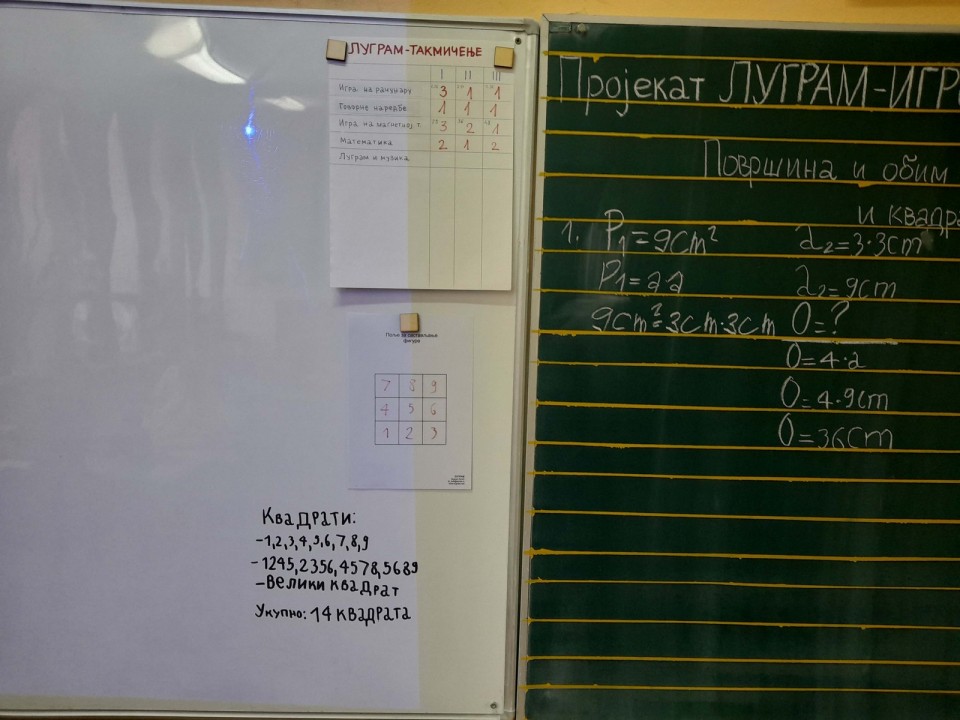 ЛУГРАМ-ТАКМИЧЕЊЕ
I II III
Игра на рачунару 3 1 1
Говорне наредбе 1 1 1
Игра на магнетној т. 3 2 1
Математика 2 1 2
Луграм и музика
Поље за састављање
фигуре
7 8 9
4 5 6
1 2 3
Квадрати:
-1,2,3,4,5,6,7,8,9
-1245,2356,4578,5689
-Велики квадрат
Укупно: 14 квадрата
Пројекат ЛУГРАМ-ИГР
Површина и обим
и квадра
1. P₁=9cm²
P₁=a·a
9cm²=3cm·3cm
a₂=3·3cm
a₂=9cm
O=?
O=4·a
O=4·9cm
O=36cm